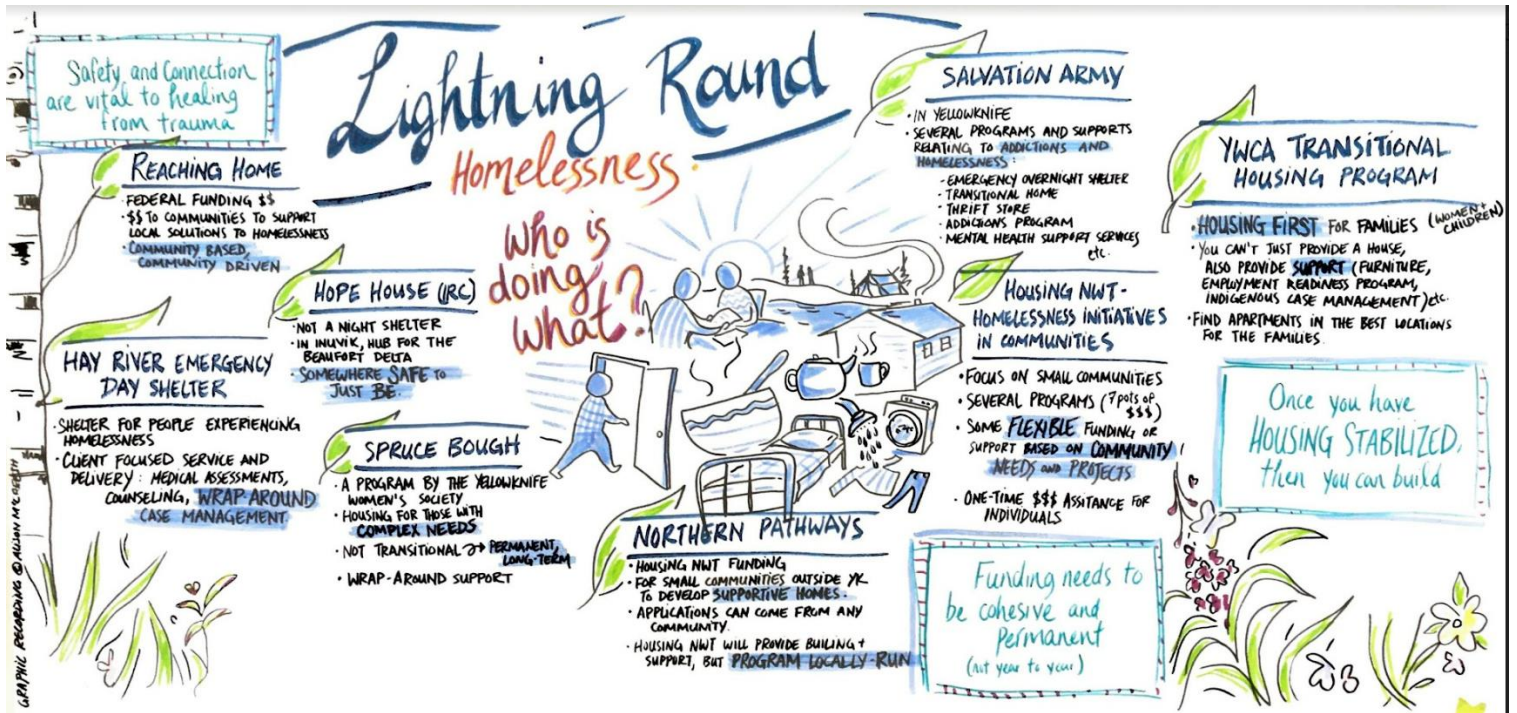 Lightning Round
Homelessness.
Who is
doing
what?
Safety and Connection
are vital to healing
from trauma
REACHING HOME
· FEDERAL FUNDING $$
· $$ TO COMMUNITIES TO SUPPORT
LOCAL SOLUTIONS TO HOMELESSNESS
· COMMUNITY BASED,
COMMUNITY DRIVEN
HOPE HOUSE (IRC)
· NOT A NIGHT SHELTER
· IN INUVIK, HUB FOR THE
BEAUFORT DELTA
· SOMEWHERE SAFE TO
JUST BE.
HAY RIVER EMERGENCY
DAY SHELTER
· SHELTER FOR PEOPLE EXPERIENCING
HOMELESSNESS
· CLIENT FOCUSED SERVICE AND
DELIVERY: MEDICAL ASSESSMENTS,
COUNSELING, WRAP-AROUND
CASE MANAGEMENT
SPRUCE BOUGH
· A PROGRAM BY THE YELLOWKNIFE
WOMEN'S SOCIETY
· HOUSING FOR THOSE WITH
COMPLEX NEEDS
· NOT TRANSITIONAL → PERMANENT,
LONG-TERM
· WRAP-AROUND SUPPORT
NORTHERN PATHWAYS
· HOUSING NWT FUNDING
· FOR SMALL COMMUNITIES OUTSIDE YK
TO DEVELOP SUPPORTIVE HOMES.
· APPLICATIONS CAN COME FROM ANY
COMMUNITY.
· HOUSING NWT WILL PROVIDE BUILING +
SUPPORT, BUT PROGRAM LOCALLY-RUN
SALVATION ARMY
· IN YELLOWKNIFE
· SEVERAL PROGRAMS AND SUPPORTS
RELATING TO ADDICTIONS AND
HOMELESSNESS:
- EMERGENCY OVERNIGHT SHELTER
- TRANSITIONAL HOME
- THRIFT STORE
- ADDICTIONS PROGRAM
- MENTAL HEALTH SUPPORT SERVICES
etc.
HOUSING NWT -
HOMELESSNESS INITIATIVES
IN COMMUNITIES
· FOCUS ON SMALL COMMUNITIES
· SEVERAL PROGRAMS (7 pots of
$$$)
· SOME FLEXIBLE FUNDING OR
SUPPORT BASED ON COMMUNITY
NEEDS AND PROJECTS
· ONE-TIME $$$ ASSITANCE FOR
INDIVIDUALS
YWCA TRANSITIONAL
HOUSING PROGRAM
· HOUSING FIRST FOR FAMILIES (WOMEN +
CHILDREN)
· YOU CAN'T JUST PROVIDE A HOUSE,
ALSO PROVIDE SUPPORT (FURNITURE,
EMPLOYMENT READINESS PROGRAM,
INDIGENOUS CASE MANAGEMENT) etc.
· FIND APARTMENTS IN THE BEST LOCATIONS
FOR THE FAMILIES.
Once you have
HOUSING STABILIZED,
then you can build
Funding needs to
be cohesive and
permanent
(not year to year)
GRAPHIC RECORDING @ ALISON MCCREESH